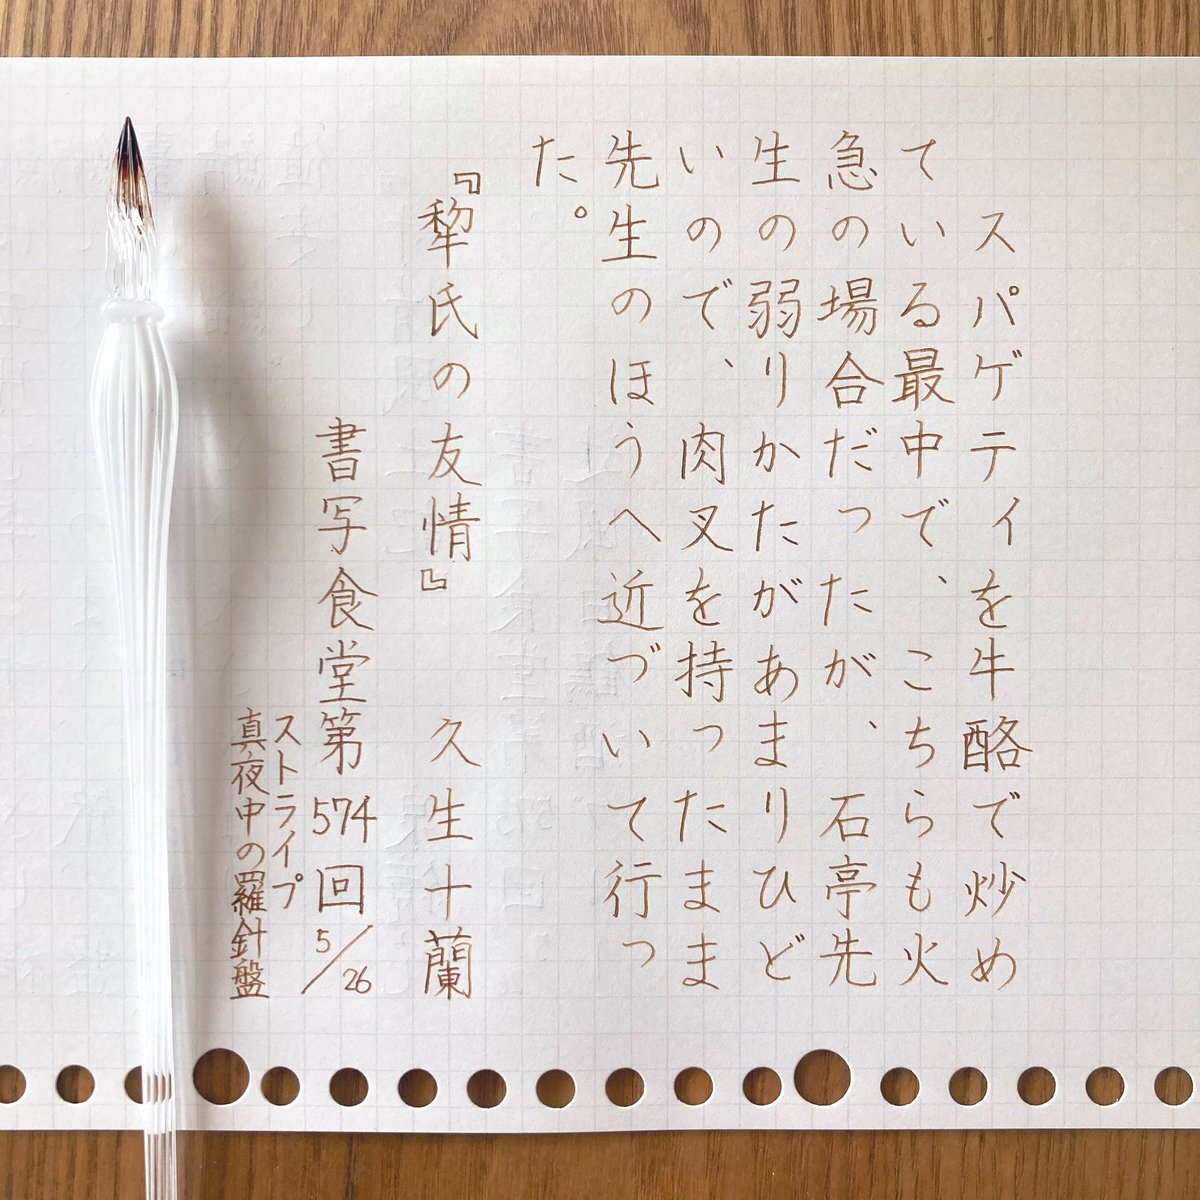 スパゲティを牛酪で炒め
ている最中で、こちらも火
急の場合だったが、石亭先
生の弱りかたがあまりひど
いので、肉叉を持ったまま
先生のほうへ近づいて行っ
た。
『犂氏の友情』 久生十蘭
書写食堂第574回 5/26
ストライプ
真夜中の羅針盤